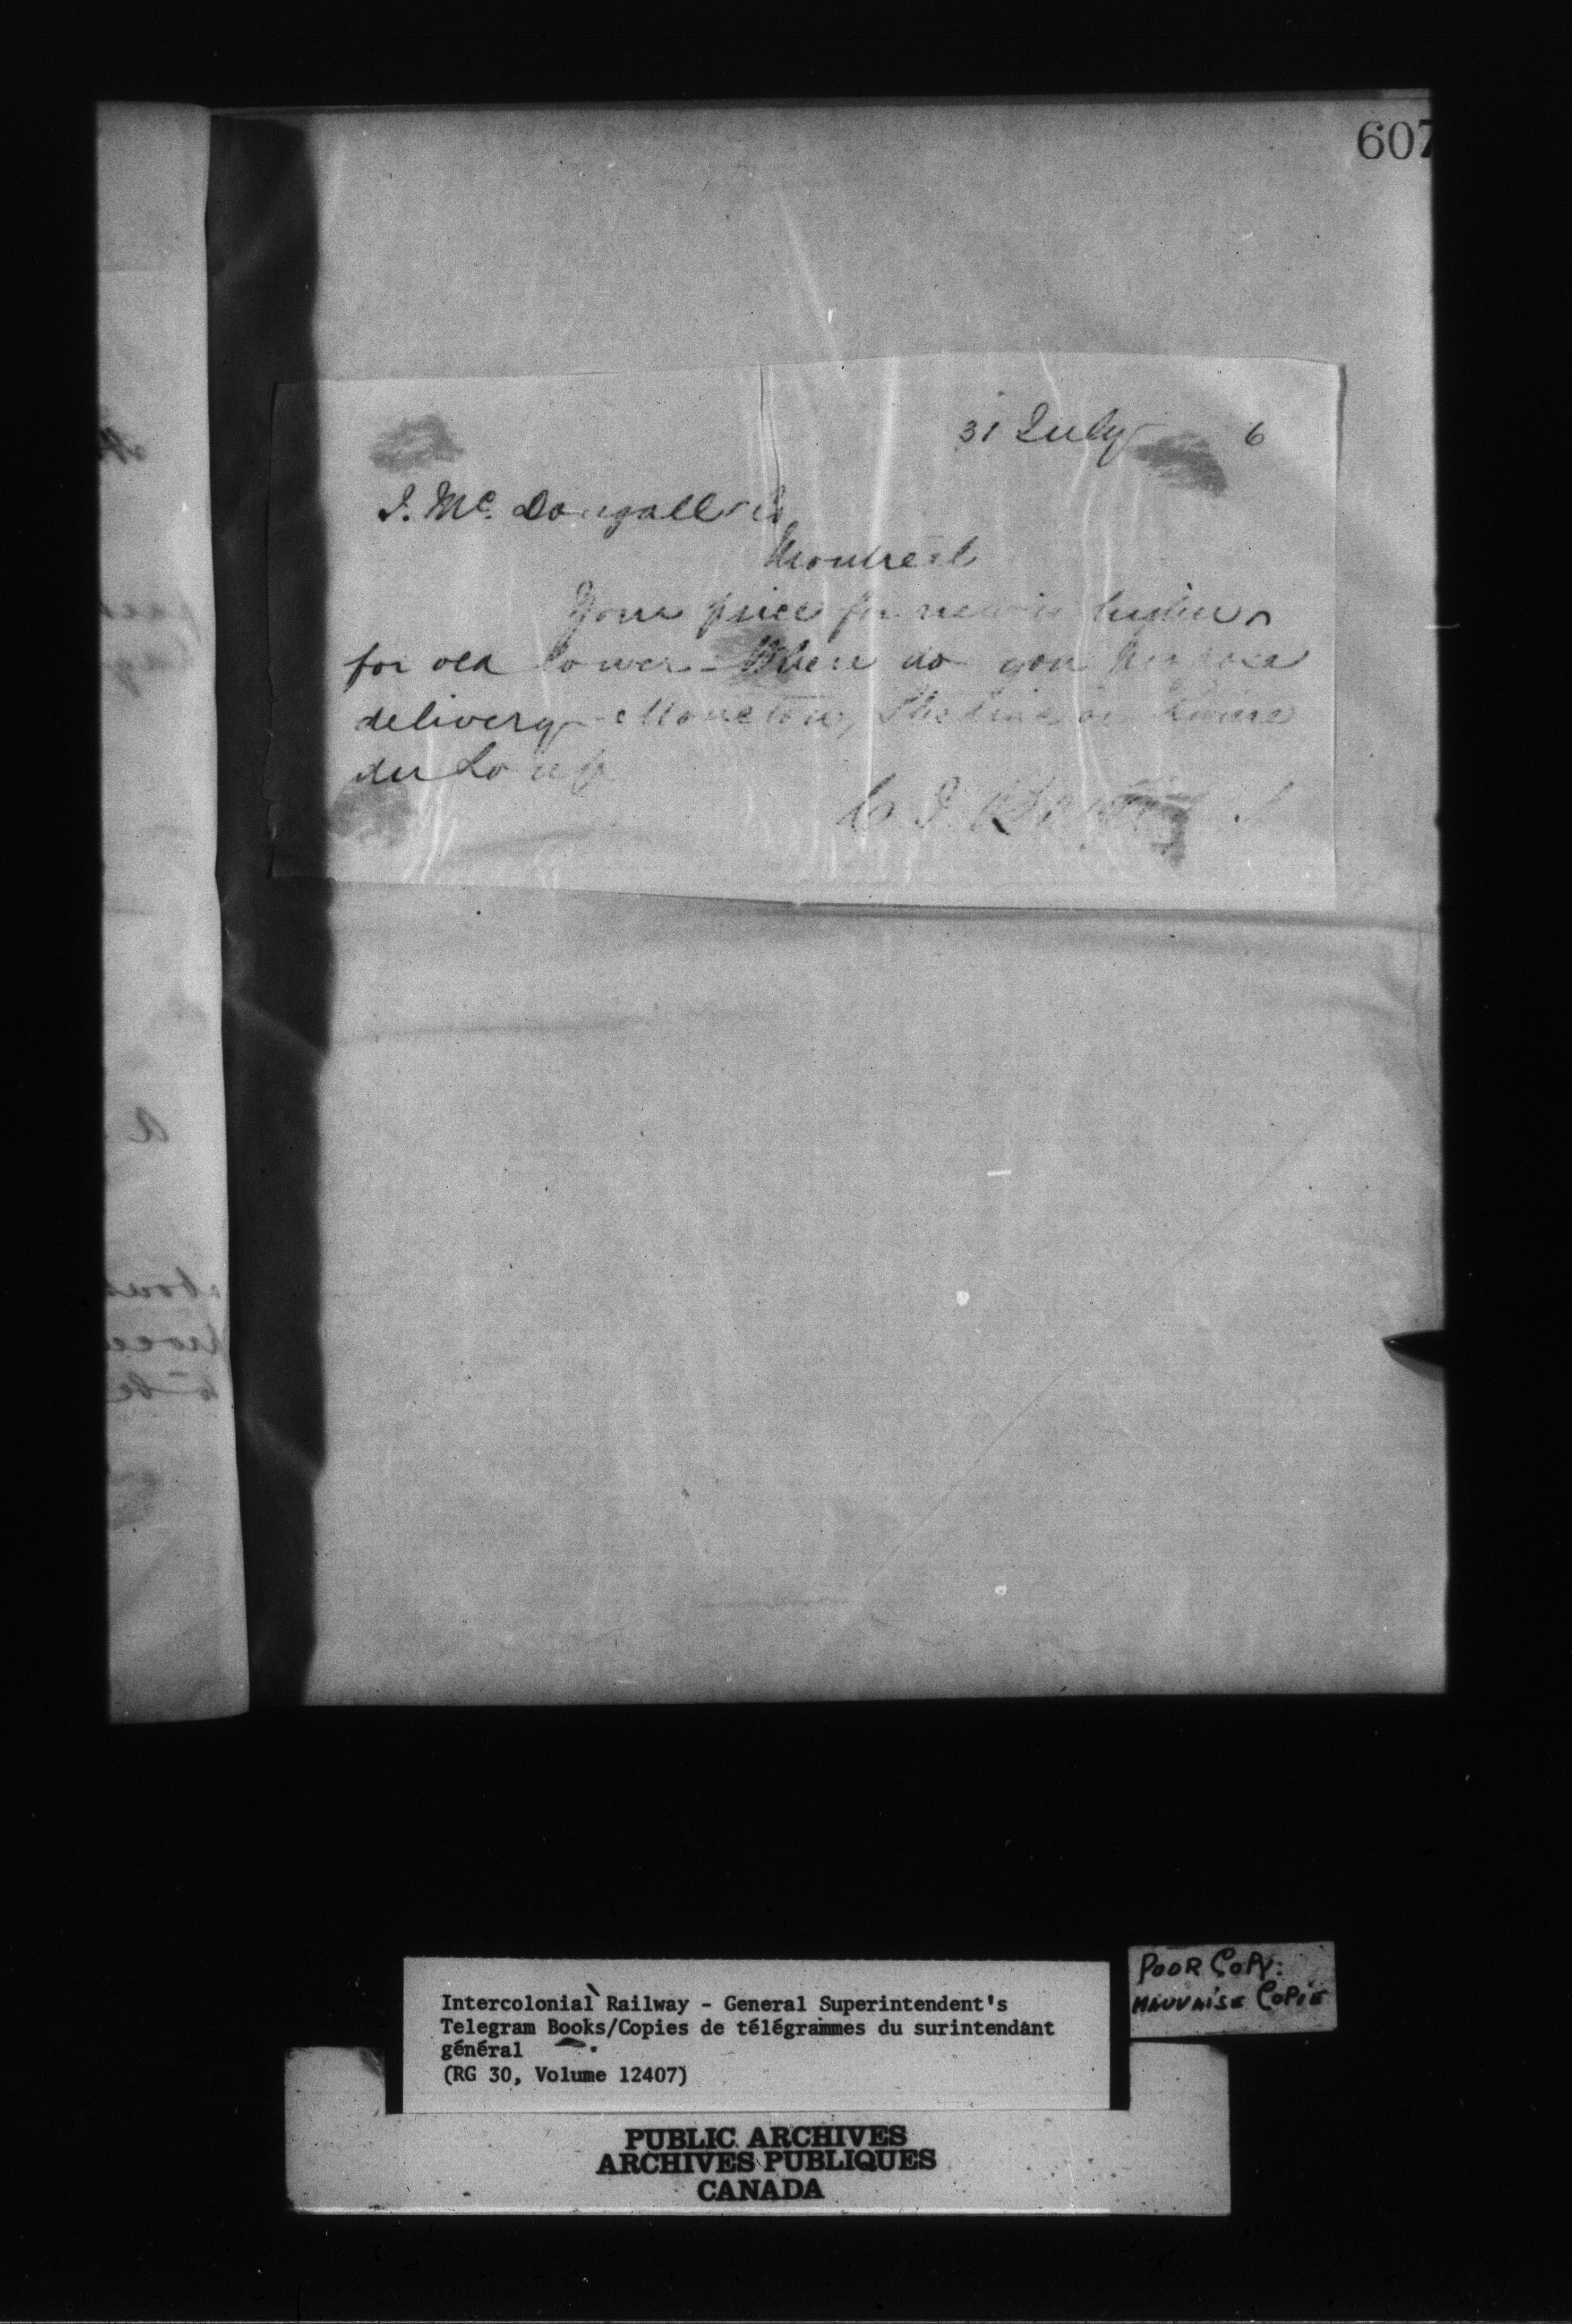 607
31 July 6
J. McDougall & Co
Montreal
Your price for new is higher
for old lower - Where do you propose
delivery - Moncton, Shediac or Riviere
du Loup
C. J.
Intercolonial Railway - General Superintendent's
Telegram Books/Copies de télégrammes du surintendant
général
(RG 30, Volume 12407)
POOR COPY:
MAUVAISE COPIE
PUBLIC ARCHIVES
ARCHIVES PUBLIQUES
CANADA